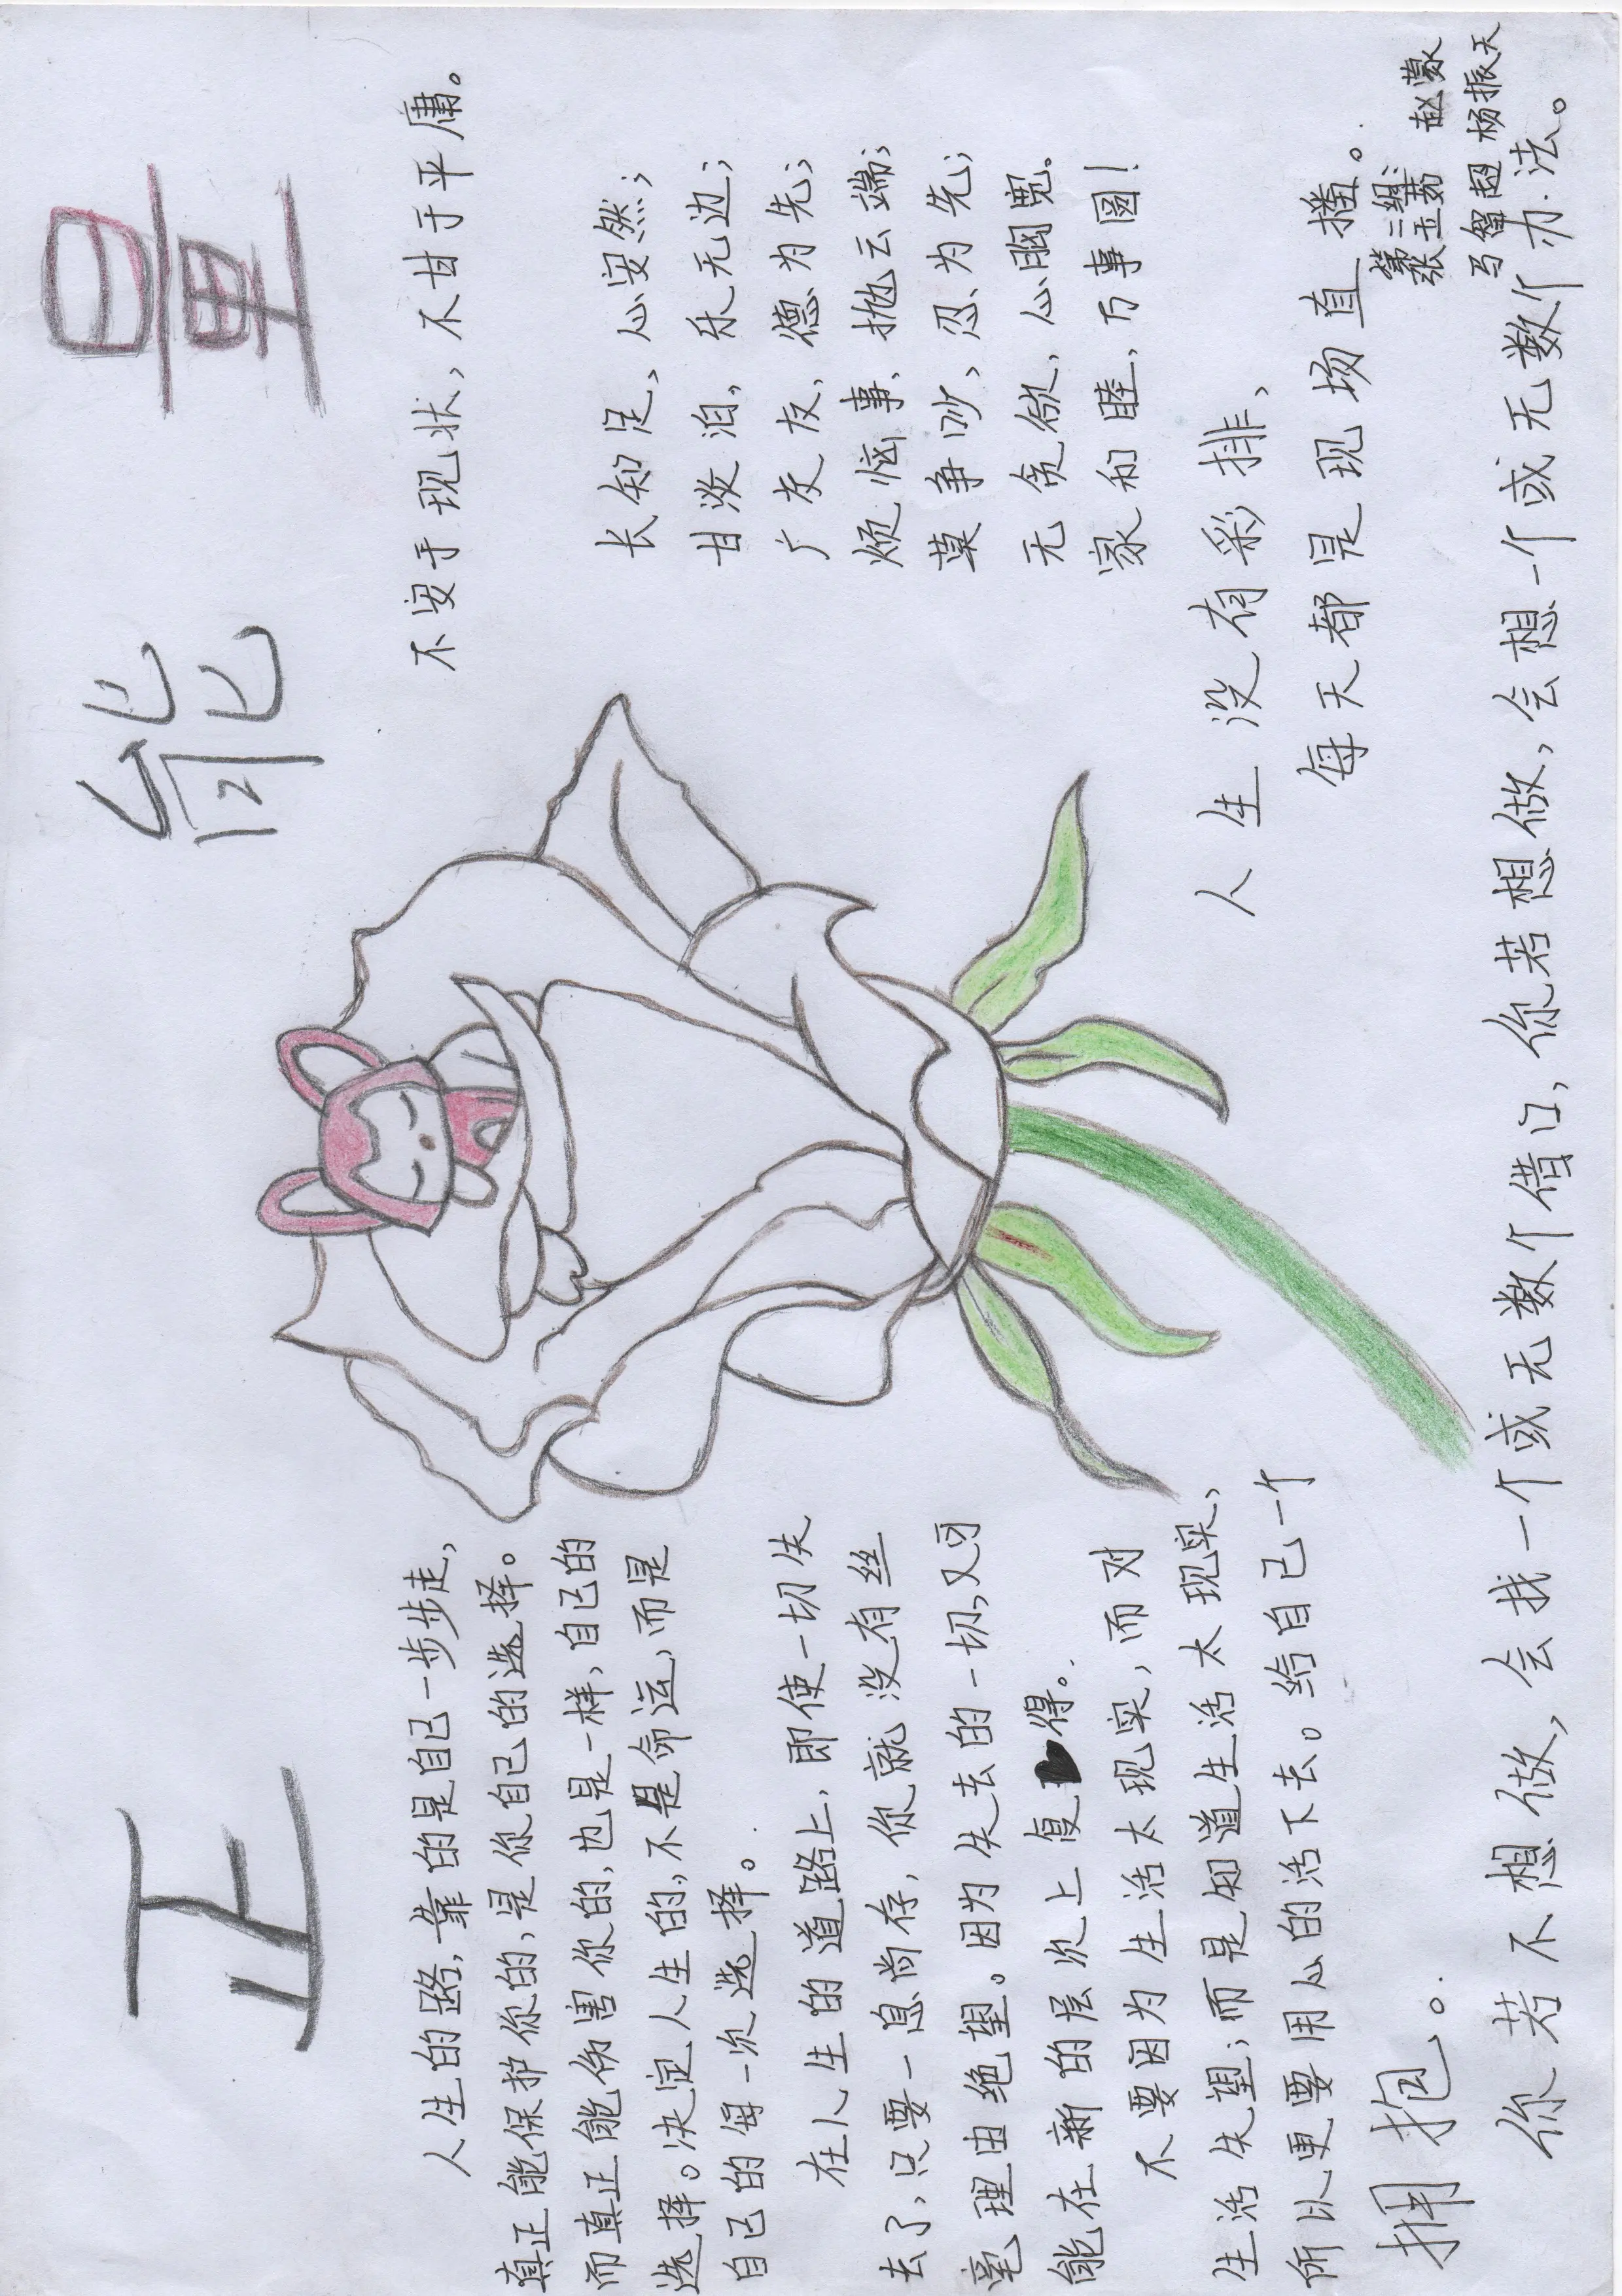 正能量
人生的路，靠的是自己一步步走，
真正能保护你的，是你自己的选择。
而真正能伤害你的，也是一样，自己的
选择。决定人生的，不是命运，而是
自己的每一次选择。
在人生的道路上，即使一切失
去了，只要一息尚存，你就没有丝
毫理由绝望。因为失去的一切，又可
能在新的层次上复得。
不要因为生活太现实，而对
生活失望；而是知道生活太现实，
所以更要用心的活下去。给自己一个
拥抱。
不安于现状，不甘于平庸。
长知足，心安然；
甘淡泊，乐无边；
广交友，德为先；
烦恼事，抛云端；
莫争吵，忍为先；
无贪欲，心胸宽。
家和睦，万事圆！
人生没有彩排、
每天都是现场直播。
第三组：赵濛
张玉茹
马智超 杨振天
你若不想做，会找一个或无数个借口，你若想做，会想一个或无数个办法。